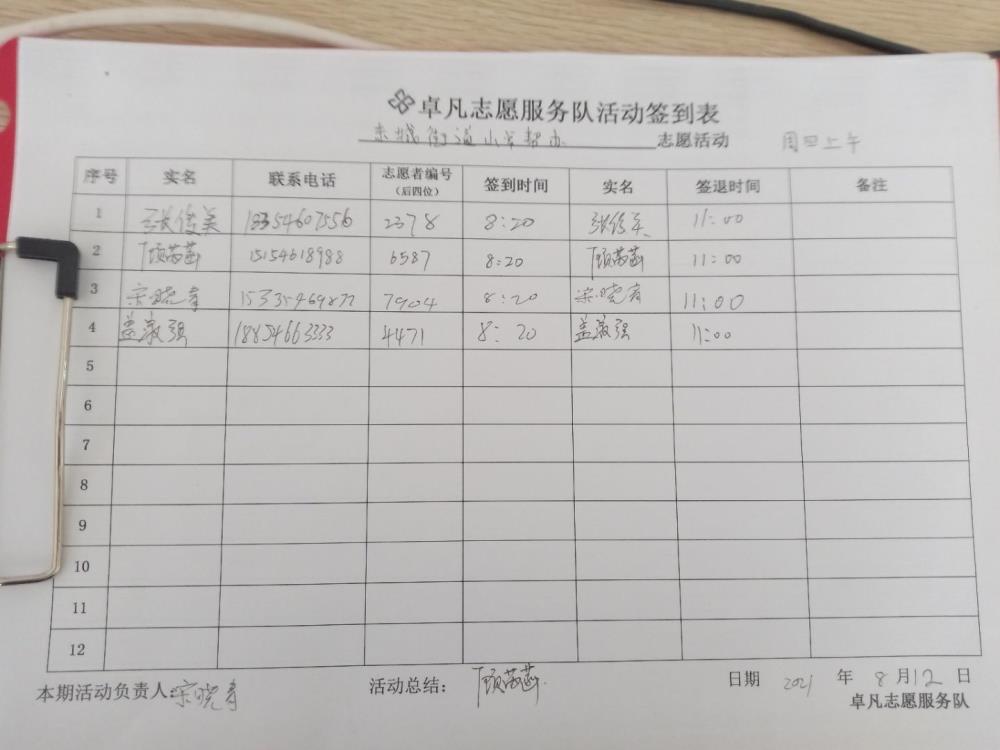 卓凡志愿服务队活动签到表
东城街道小学帮办 志愿活动 周四上午
序号 实名 联系电话 志愿者编号（后四位） 签到时间 实名 签退时间 备注
1 张俊美 13354607556 2378 8:20 张俊美 11:00
2 顾 15154618988 6587 8:20 顾 11:00
3 宋晓 15335469877 7904 8:20 宋晓 11:00
4 盖 强 18854663333 4471 8:20 盖 强 11:00
5
6
7
8
9
10
11
12
本期活动负责人:宋晓 活动总结: 顾 日期 2021 年 8 月 12 日
卓凡志愿服务队